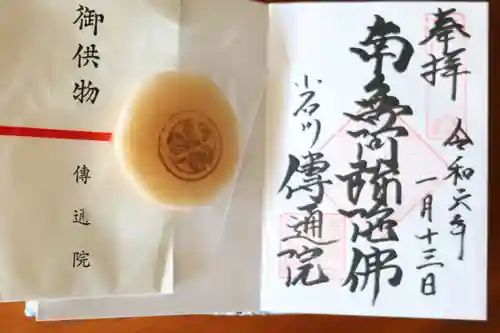 奉拝
令和六年
一月十三日
南無阿弥陀佛
小石川
傳通院
御供物
傳通院